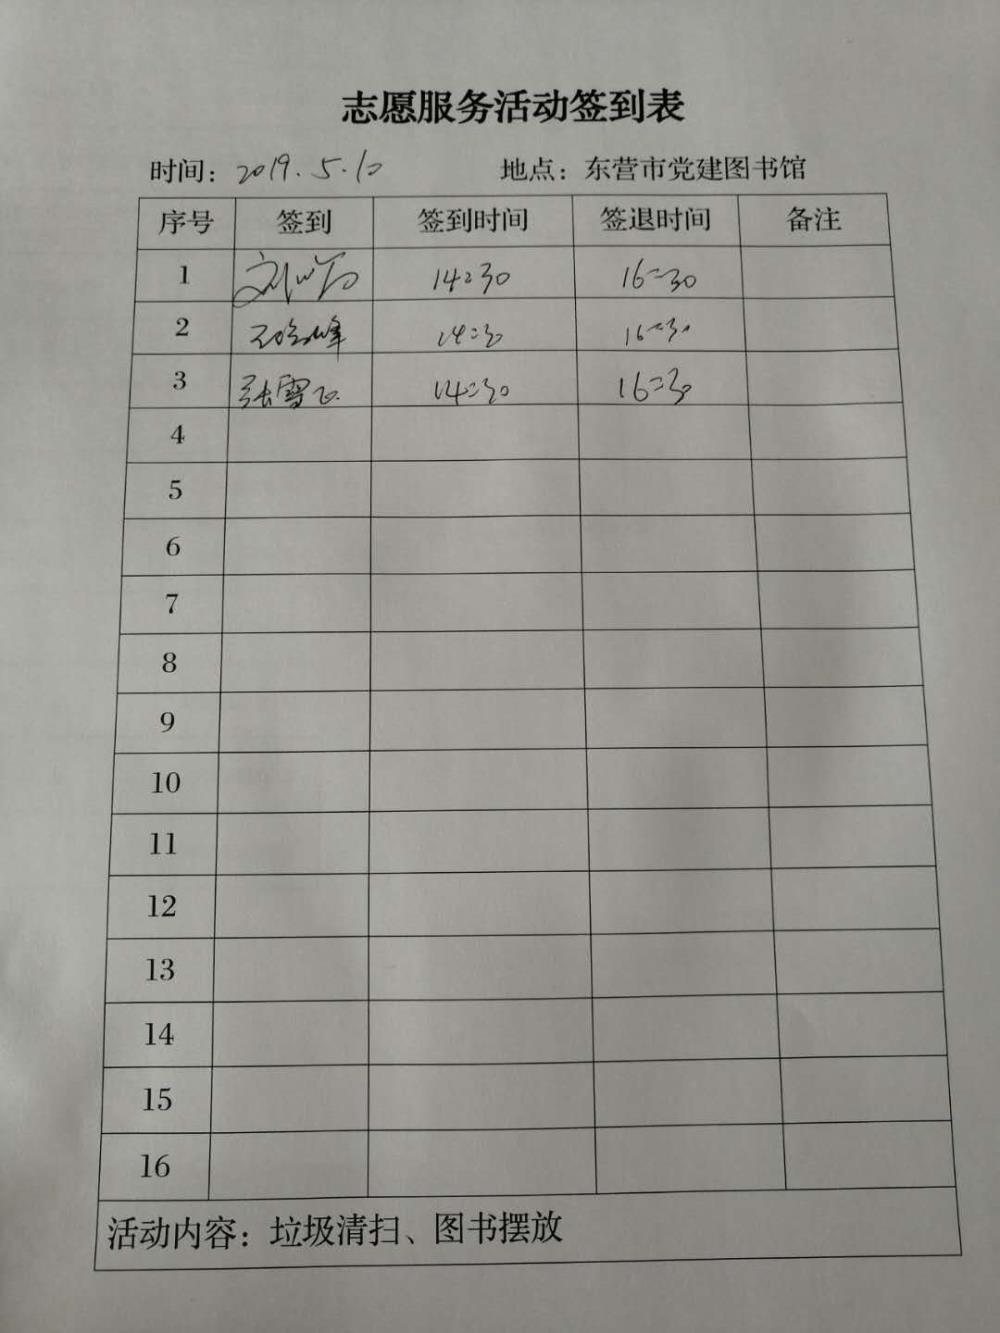 志愿服务活动签到表
时间：2019.5.10 地点：东营市党建图书馆
序号 签到 签到时间 签退时间 备注
1 14:30 16:30
2 峰 14:30 16:30
3 张雪飞 14:30 16:30
4
5
6
7
8
9
10
11
12
13
14
15
16
活动内容：垃圾清扫、图书摆放